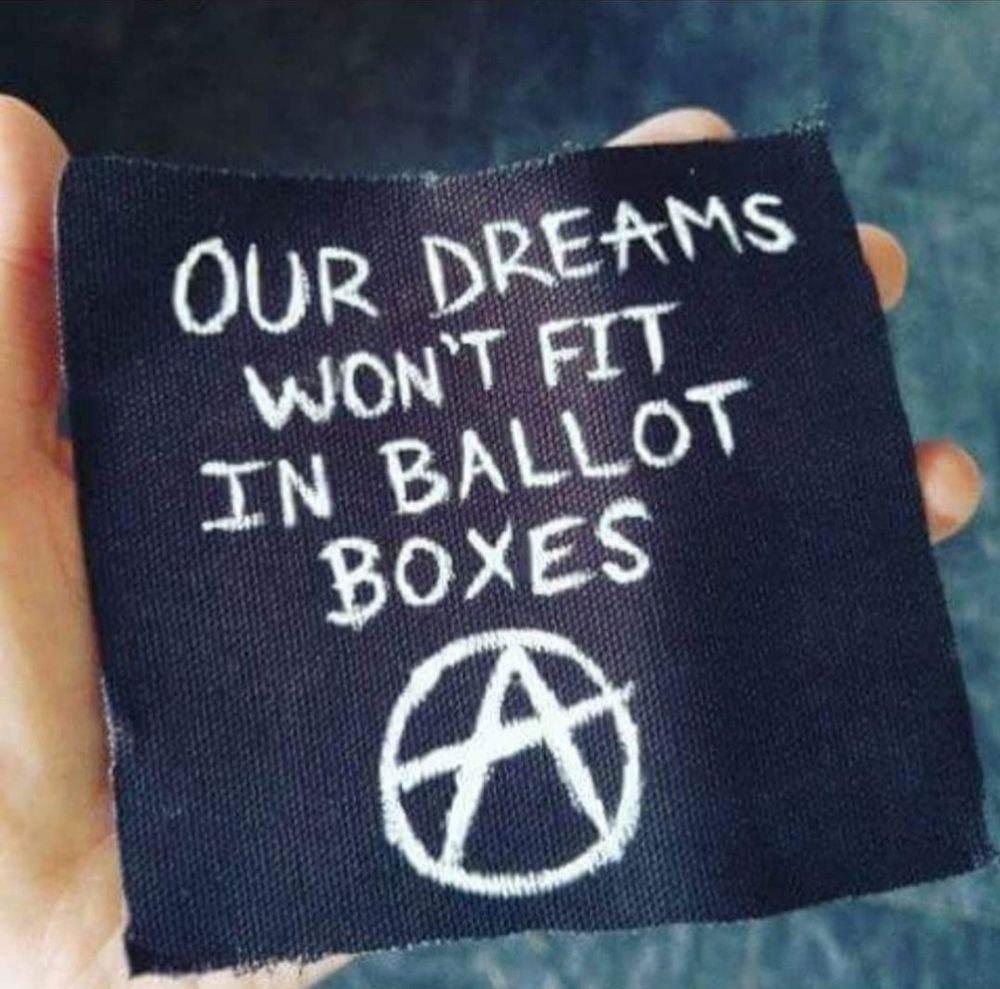 OUR DREAMS
WON'T FIT
IN BALLOT
BOXES